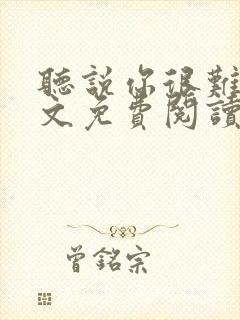 聽說你很難
文免費閱讀
曾銘宗